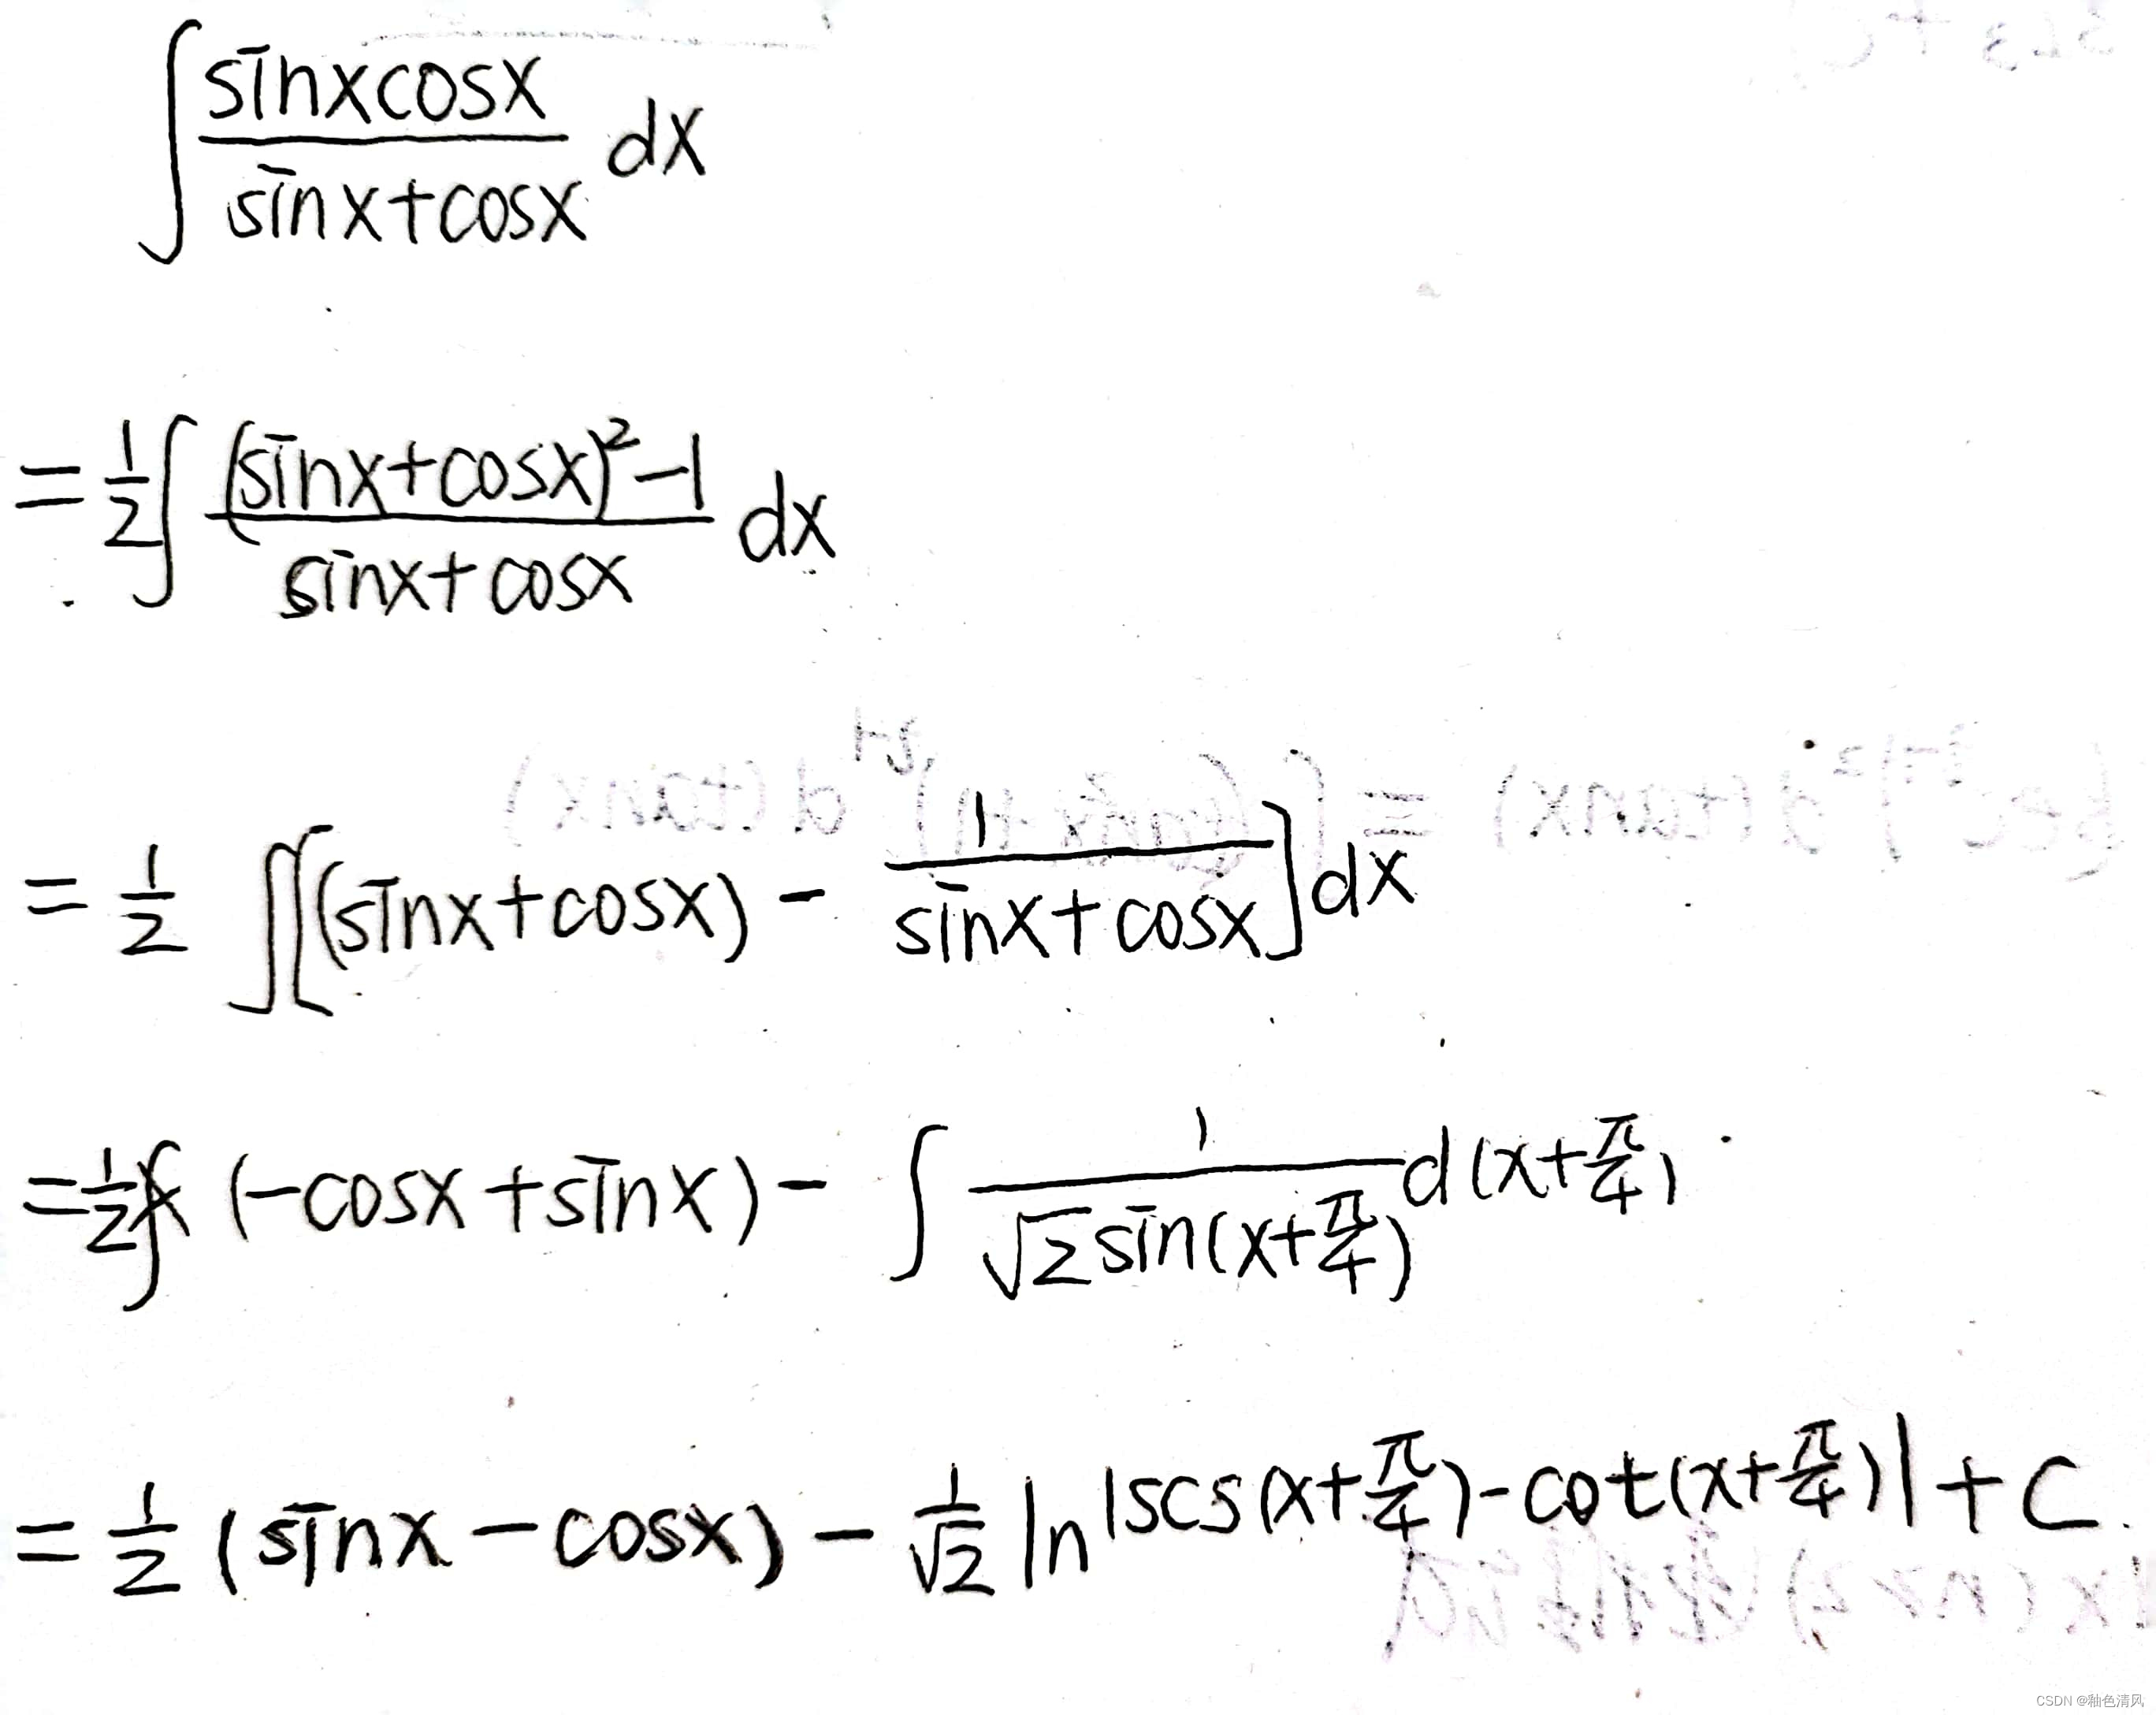 ∫ sinxcosx / sinx+cosx dx
= 1/2 ∫ (sinx+cosx)² -1 / sinx+cosx dx
= 1/2 ∫[(sinx+cosx) - 1 / sinx+cosx] dx
= 1/2 (-cosx+sinx) - ∫ 1 / √2 sin(x+π/4) d(x+π/4)
= 1/2 (sinx-cosx) - 1/√2 ln|scs(x+π/4)-cot(x+π/4)|+C
CSDN @釉色清风